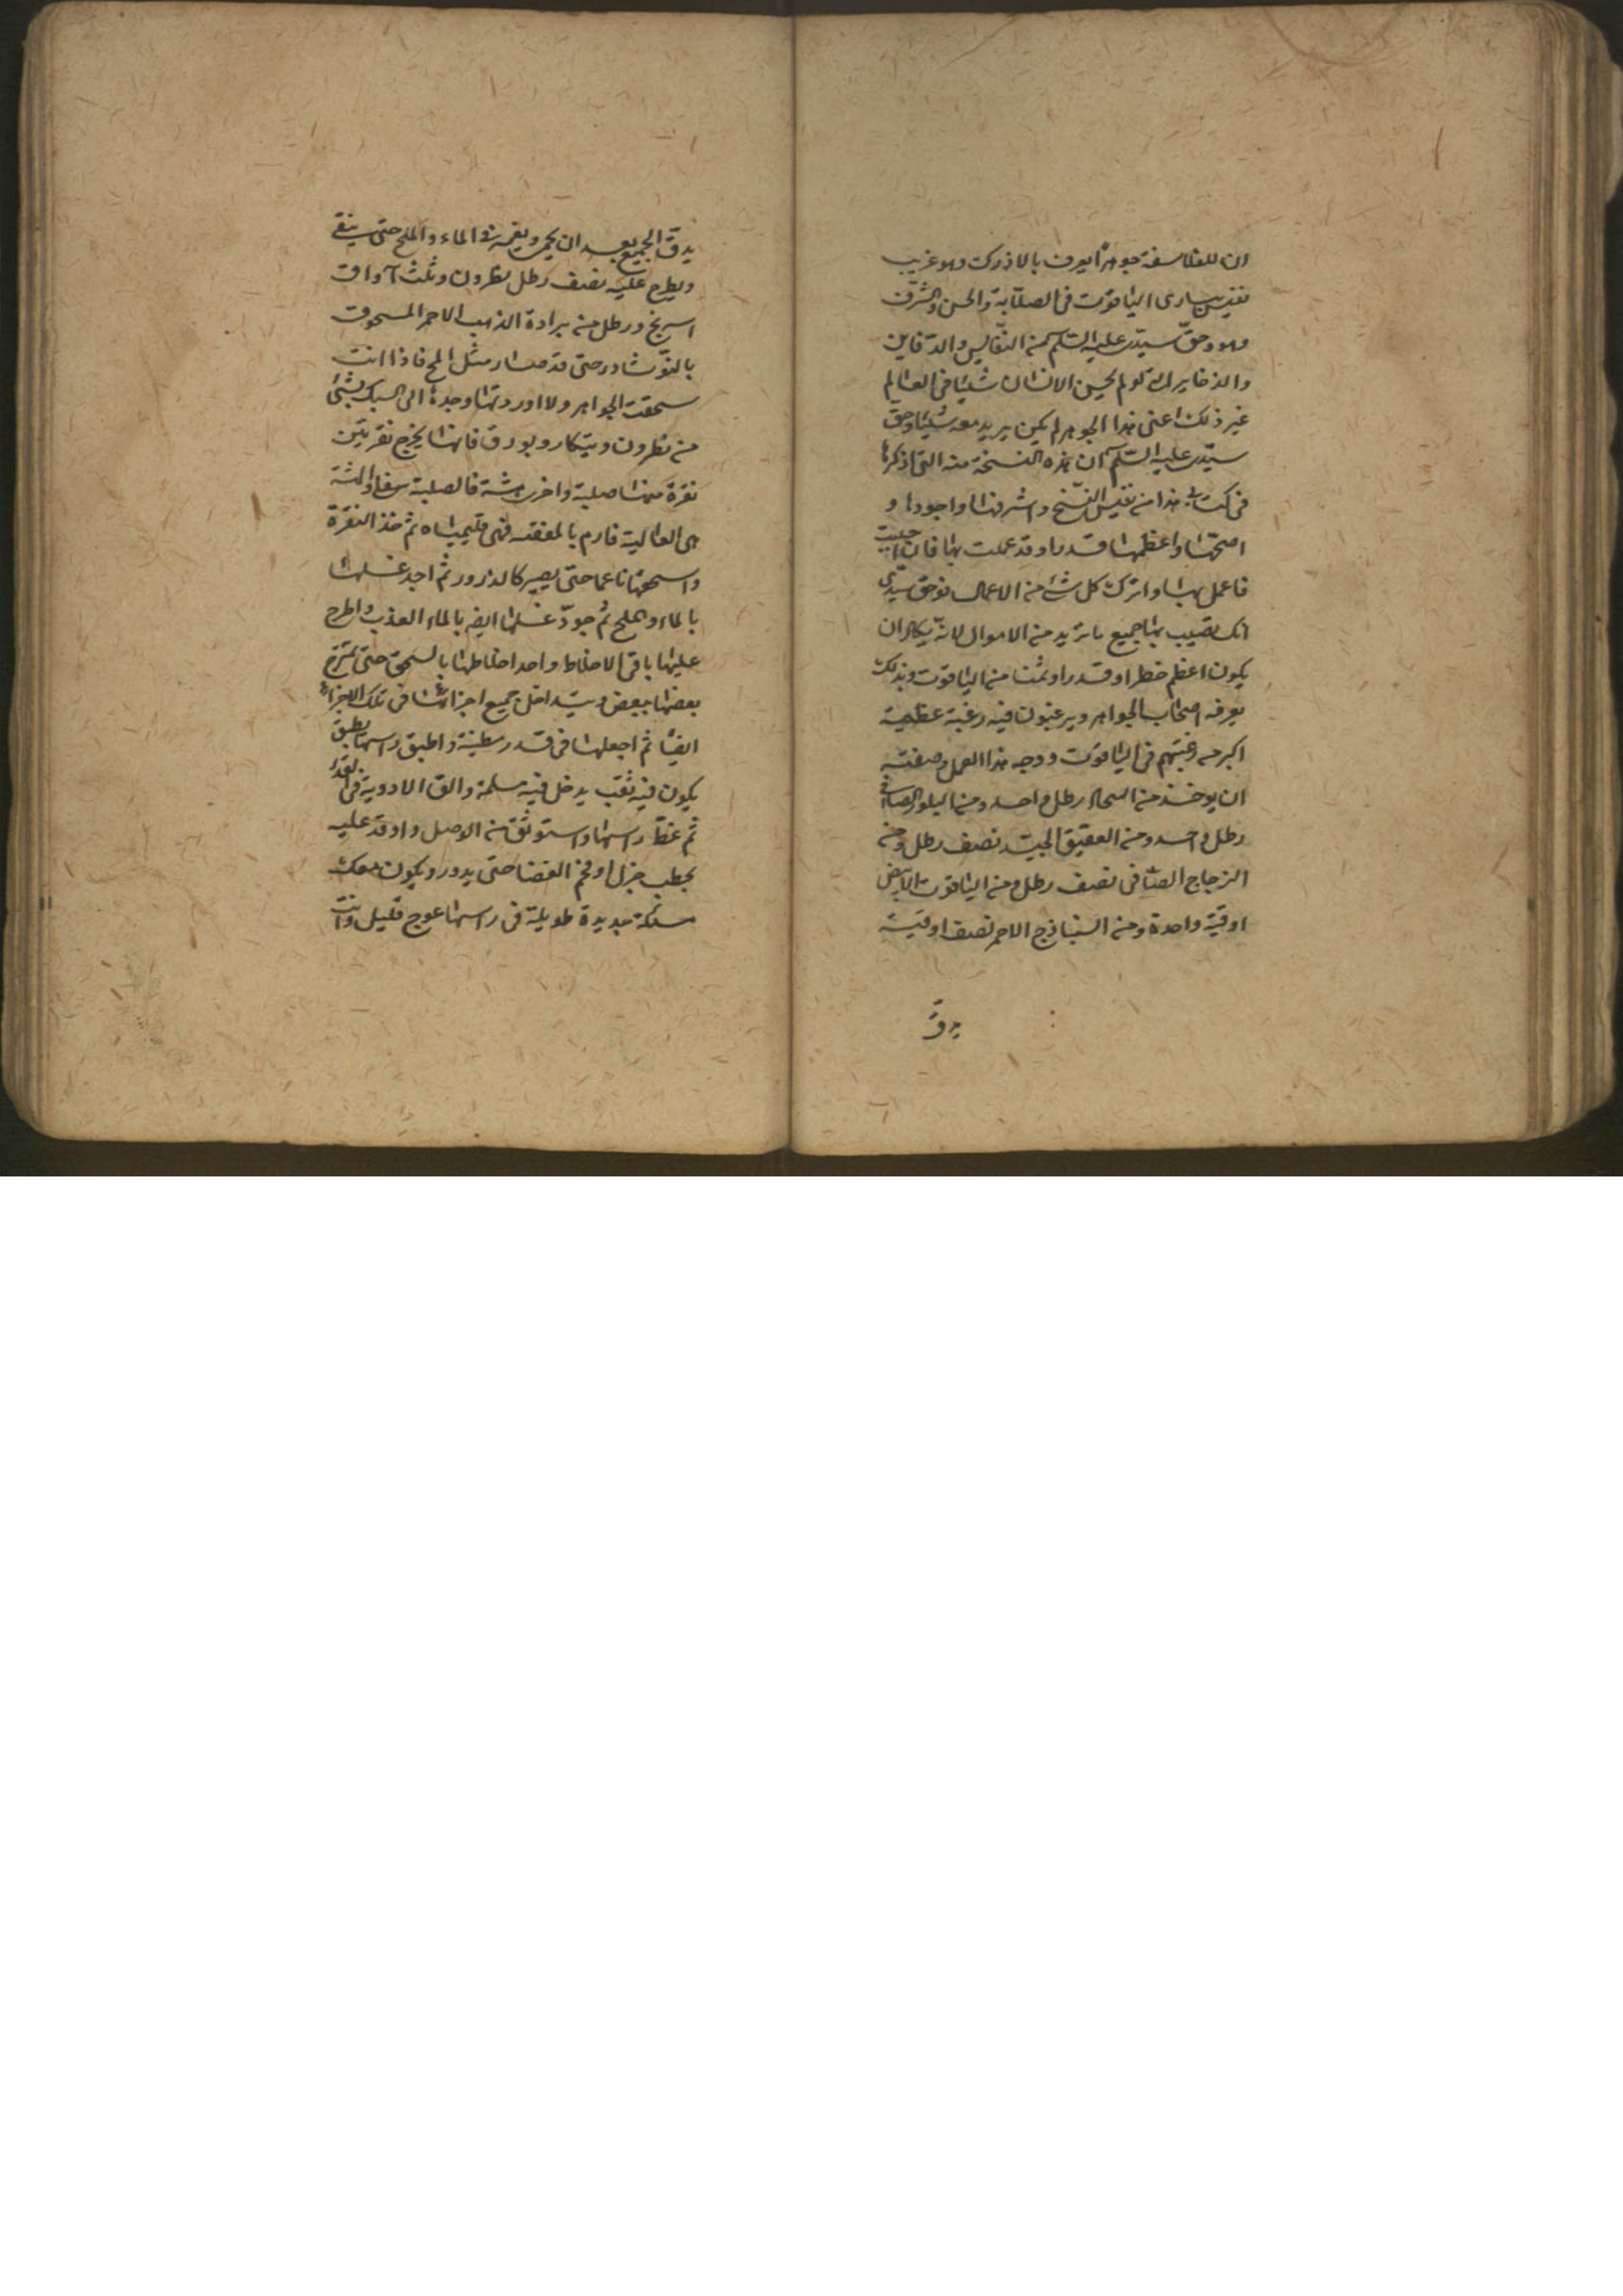 ان للفلاسفة جوهرا يعرف بالاذرك وهو غريب
نفيس يساوى الياقوت فى الصلابة والحسن والشرف
وهو وحق سيدى عليه السلم من النفايس والدفاين
والذخاير لانه لو لم يحسن الانسان شيئا فى العالم
غير ذلك اعنى هذا الجوهر لم يكن يريد معه شيئا وحق
سيدى عليه السلم ان هذه النسخة منه التى اذكرها
فى كتابى هذا من نفيس النسخ واشرفها واجودها و
اصحها واعظمها قدرا وقد عملت بها فان احببت
فاعمل بها واترك كل شئ من الاعمال فوحق سيدى
انك تصيب بها جميع ما تريد من الاموال لانه يكاد ان
يكون اعظم خطرا وقدرا وثمنا من الياقوت وبذلك
يعرفه اصحاب الجواهر ويرغبون فيه رغبة عظيمة
اكبر من رغبتهم فى الياقوت ووجه هذا العمل وصفته
ان يوخذ من رطل واحد ومن البلور الصافى
رطل واحد ومن العقيق الجيد نصف رطل ومن
الزجاج الصافى نصف رطل ومن الياقوت الابيض
اوقية واحدة ومن السنباذج الاحمر نصف اوقية
يدق
يدق الجميع بعد ان يحمى ويغمر فى الماء والملح حتى ينقى
ويطرح عليه نصف رطل نطرون وثلث آواق
اسرنج ورطل من برادة الذهب الاحمر المسحوق
بالنوشادر حتى قد صار مثل المح فاذا انت
سحقت الجواهر ولا اوردتها وحدها الى السبك بشئ
من نطرون وتنكار وبورق فانها يخرج نقرتين
نقرة منها صلبة واخرى هشة فالصلبة سفلا والهشة
هى العالية فارم بالمغنه فهى قليمياه ثم خذ النقرة
واسحقها ناعما حتى يصير كالذرور ثم اجد غسلها
بالماء والملح ثم جود غسلها ايضه بالماء العذب واطرح
عليها باقى الاخلاط واحد اخلاطها بالسحق حتى يمتزج
بعضها ببعض ويتداخل جميع اجزائها فى تلك الاجزاء
ايضا ثم اجعلها فى قدر مطينة واطبق راسها بطبق
يكون فيه ثقب يدخل فيه مسلة والق الادوية فى القدر
ثم غط راسها واستوثق من الوصل واوقد عليه
بحطب جزل او فحم الغضا حتى يدور ويكون معك
مسلة حديدة طويلة فى راسها عوج قليل وانت